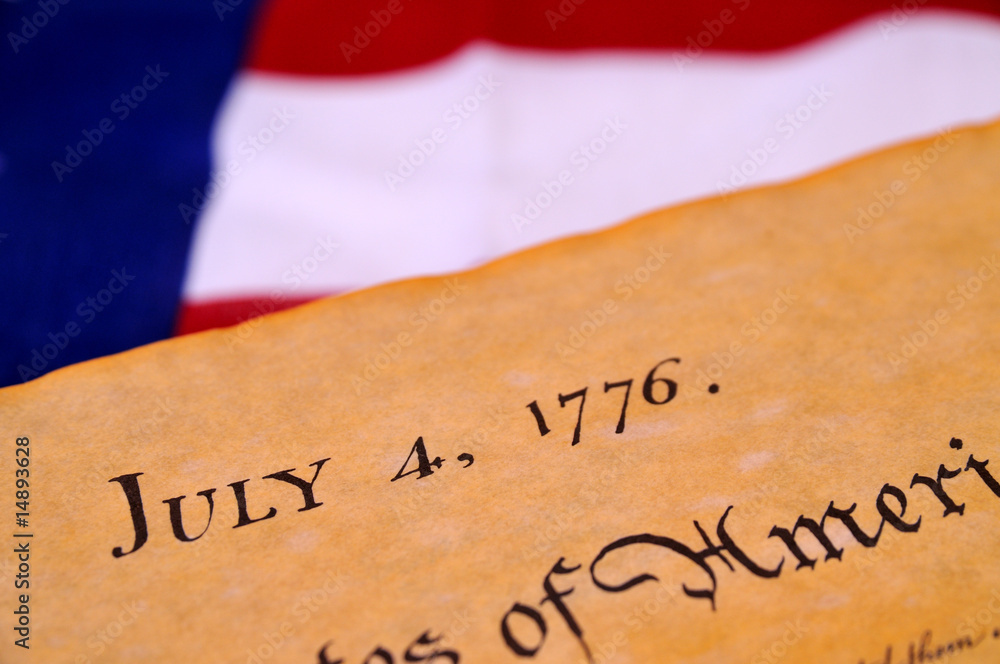 July 4, 1776.
of Ameri
them
Adobe Stock | #14893628